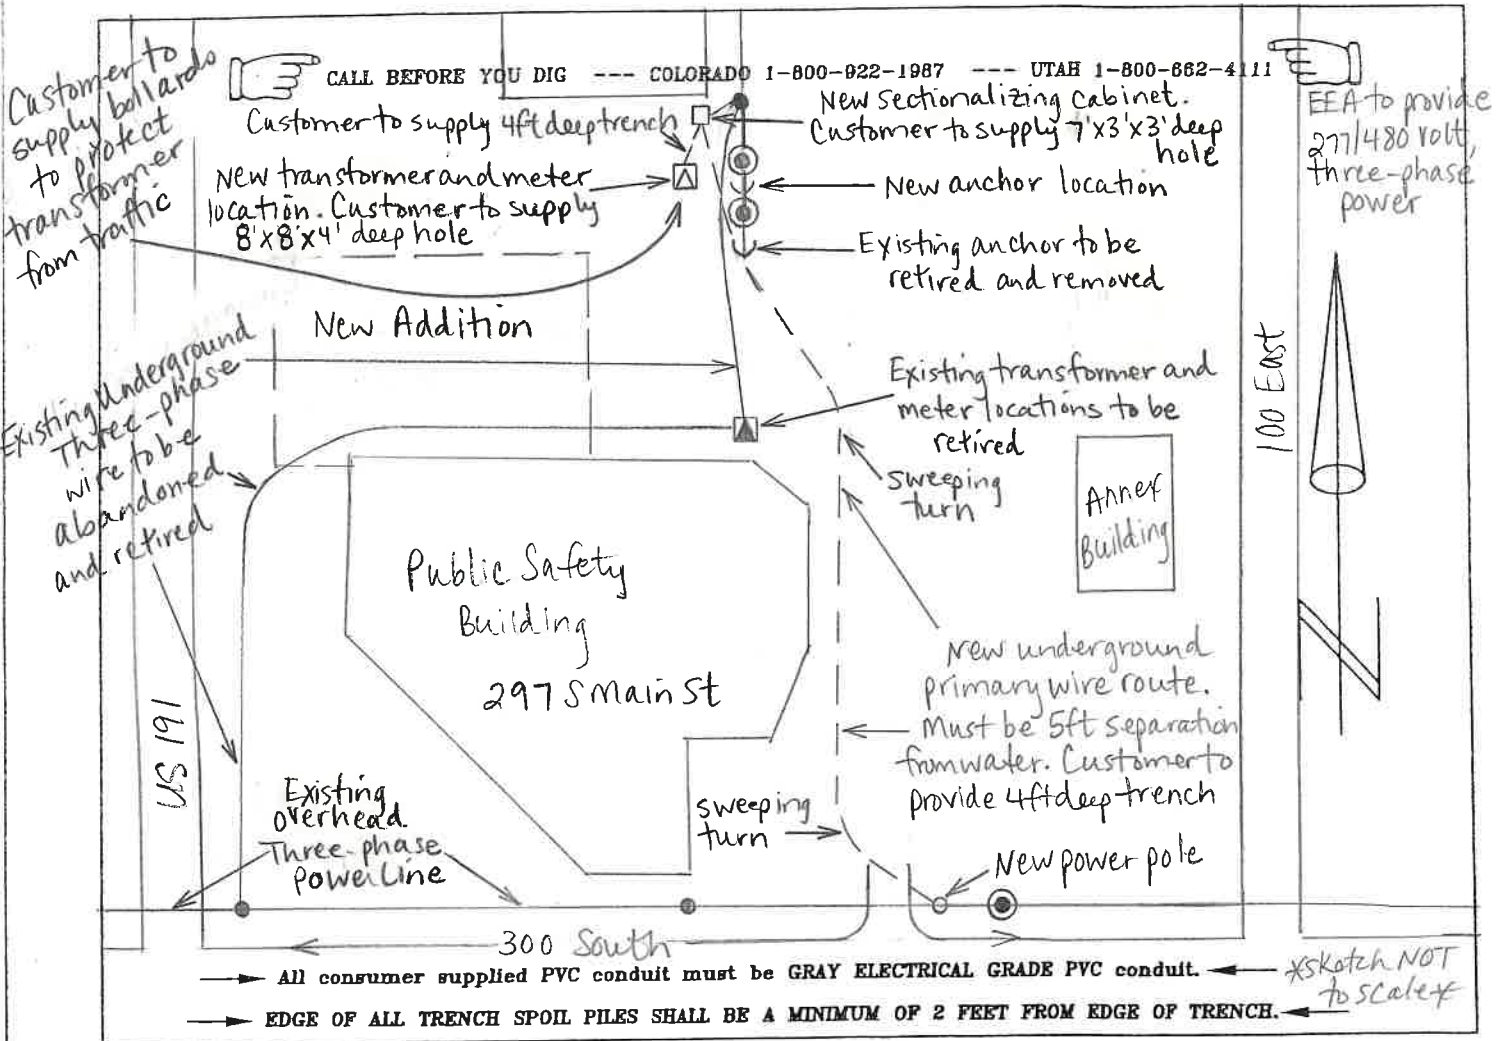 CALL BEFORE YOU DIG --- COLORADO 1-800-922-1987 --- UTAH 1-800-662-4111
Customer to
supply bollards
to protect
transformer
from traffic
Customer to supply 4ft deep trench
New Sectionalizing Cabinet.
Customer to supply 7'x3'x3' deep
hole
EEA to provide
277/480 volt,
three-phase
power
New transformer and meter
location. Customer to supply
8'x8'x4' deep hole
New anchor location
Existing anchor to be
retired and removed
New Addition
Existing Underground
Three-phase
wire to be
abandoned
and retired
Existing transformer and
meter locations to be
retired
100 East
sweeping
turn
Annex
Building
Public Safety
Building
297 S Main St
New underground
primary wire route.
Must be 5ft separation
from water. Customer to
provide 4ft deep trench
N
US 191
Existing
overhead
Three-phase
Power Line
sweeping
turn
New power pole
300 South
All consumer supplied PVC conduit must be GRAY ELECTRICAL GRADE PVC conduit.
*Sketch NOT
to scale*
EDGE OF ALL TRENCH SPOIL PILES SHALL BE A MINIMUM OF 2 FEET FROM EDGE OF TRENCH.